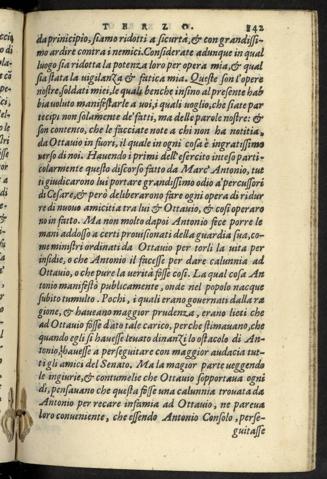 TERZO. 142
da prinicipio, siamo ridotti a sicurtà, & con grandissi-
mo ardire contra i nemici. Considerate adunque in qual
luogo sia ridotta la potenza loro per opera mia, & qual
sia stata la uigilanza & fatica mia. Queste son l'opere
nostre, soldati miei, le quali benche insino al presente hab
bia uoluto manifestarle a uoi, i quali uoglio, che siate par
tecipi non solamente de' fatti, ma delle parole nostre: &
son contento, che le facciate note a chi non ha notitia,
da Ottauio in fuori, il quale in ogni cosa è ingratissimo
uerso di noi. Hauendo i primi dell'esercito inteso parti-
colarmente questo discorso fatto da Marc' Antonio, tut
ti giudicarono lui portare grandissimo odio a' percussori
di Cesare, & però deliberarono fare ogni opera di ridur
re di nuouo amicitia tra lui & Ottauio, & così operaro
no in fatto. Ma non molto dapoi Antonio fece porre le
mani addosso a certi prouisionati della guardia sua, co-
me ministri ordinati da Ottauio per torli la uita per
insidie, o che Antonio il facesse per dare calunnia ad
Ottauio, o che pure la uerità fosse così. La qual cosa An
tonio manifestò publicamente, onde nel popolo nacque
subito tumulto. Pochi, i quali erano gouernati dalla ra
gione, & haueano maggior prudenza, erano lieti che
ad Ottauio fosse dato tale carico, perche stimauano, che
quando egli si hauesse leuato dinanzi lo ostacolo di An-
tonio, hauesse a perseguitare con maggior audacia tut-
ti gli amici del Senato. Ma la magior parte ueggendo
le ingiurie, & contumelie che Ottauio sopportaua ogni
dì, pensauano che questa fosse una calunnia trouata da
Antonio per recare infamia ad Ottauio, ne pareua
loro conueniente, che essendo Antonio Consolo, perse-
guitasse